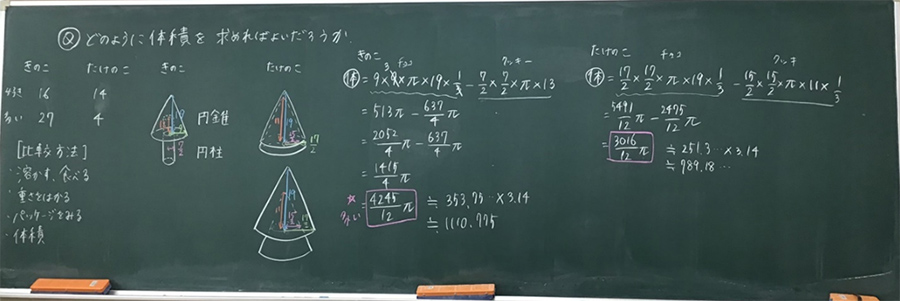 Ⓠ どのように体積を求めればよいだろうか.
きのこ たけのこ
好き 16 14
多い 27 4
[比較方法]
・溶かす、食べる
・重さをはかる
・パッケージをみる
・体積
きのこ
円錐
円柱
たけのこ
17/2
きのこ
チョコ クッキー
体 = 9×9×π×19×1/3 - 7/2×7/2×π×13
3
= 513π - 637/4π
= 2052/4π - 637/4π
= 1415/4π
☆多い = 4245/12π ≒ 353.75…×3.14
≒ 1110.775
たけのこ
チョコ クッキ
体 = 17/2×17/2×π×19×1/3 - 15/2×15/2×π×11×1/3
= 5491/12π - 2475/12π
= 3016/12π ≒ 251.3…×3.14
≒ 789.18…